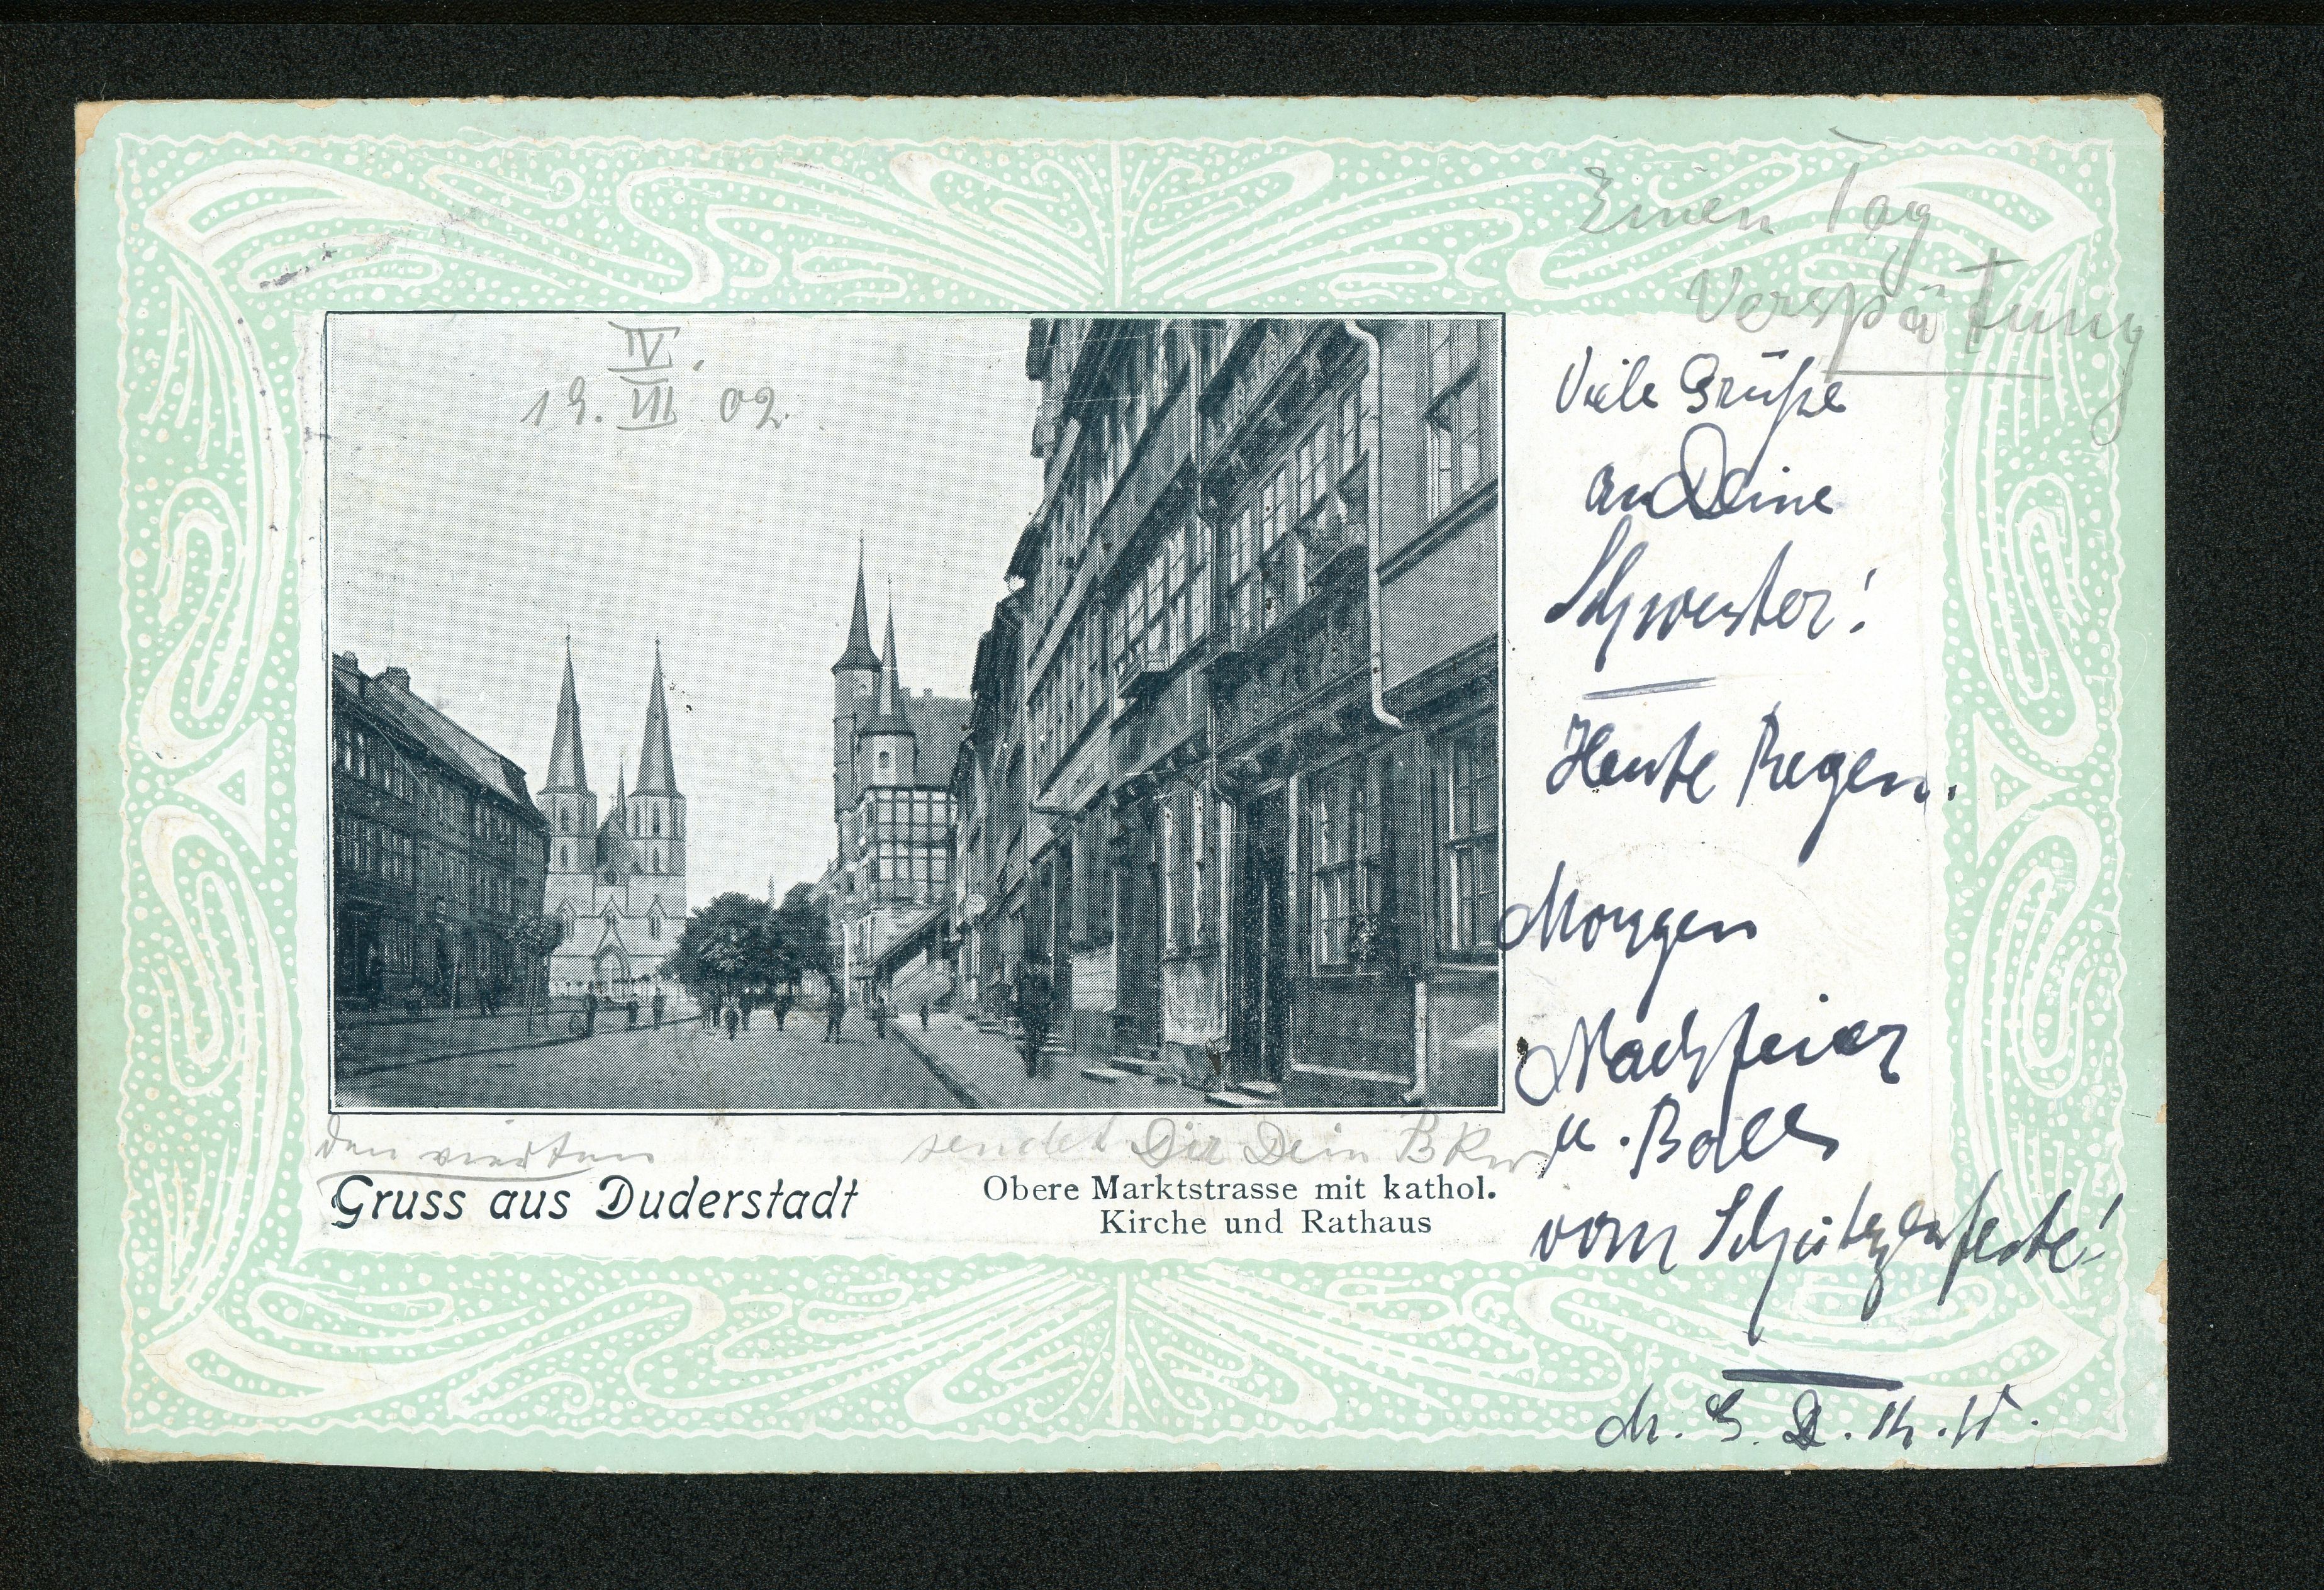 Einen Tag
Verspätung
IV.
19. VII 02.
Viele Grüße
an Deine
Schwester!
Heute Regen.
Morgen
Nachfeier
u. Ball
vom Schützenfeste!
den vierten
sendet Dir Dein
Gruss aus Duderstadt
Obere Marktstrasse mit kathol.
Kirche und Rathaus